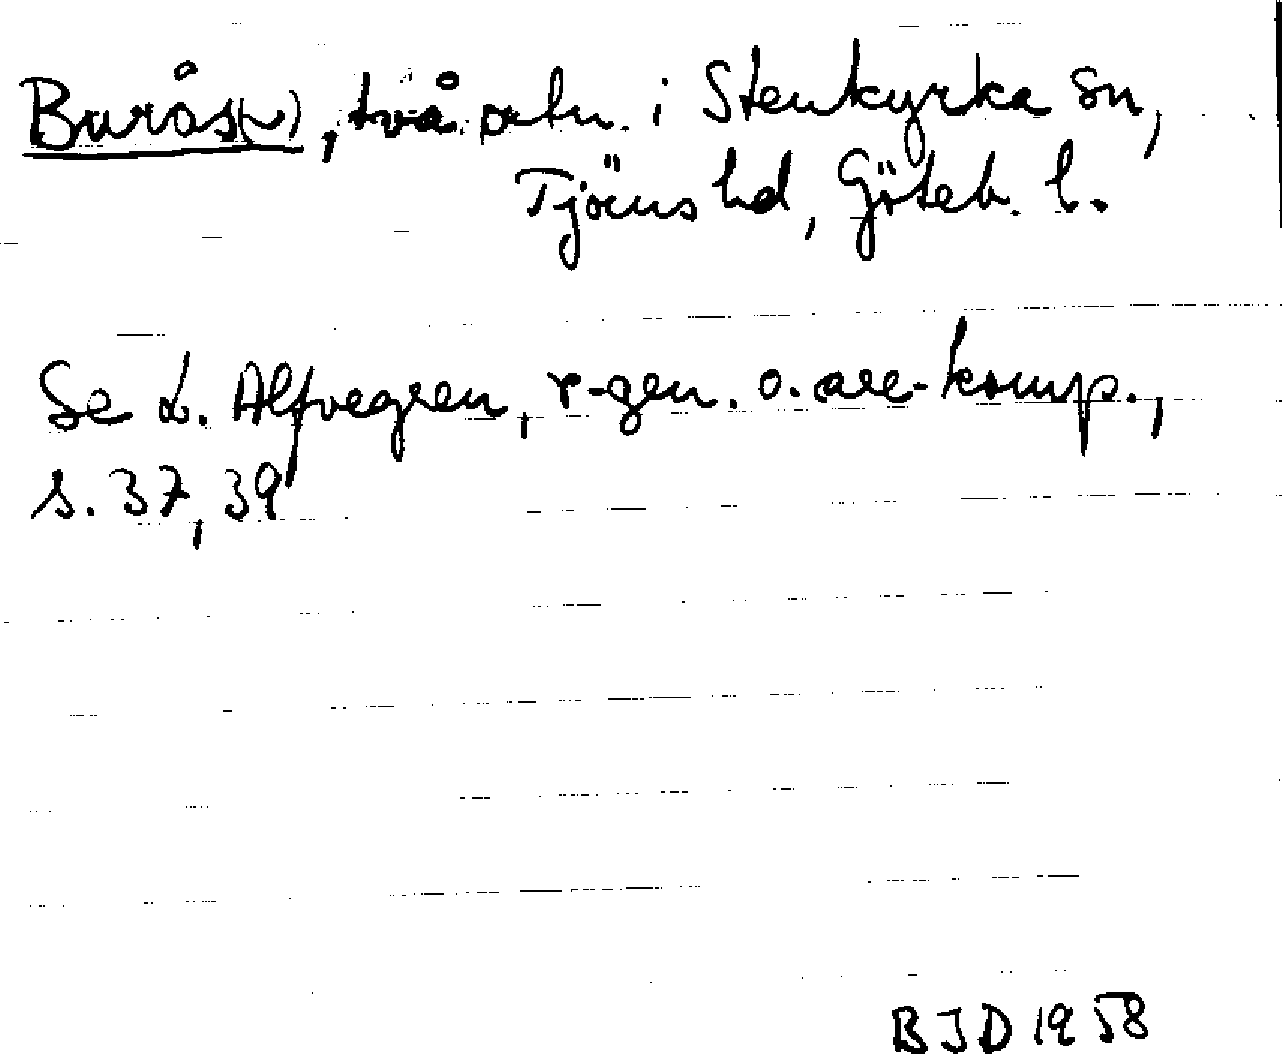 Burås(-), två ortn. i Stenkyrka sn,
Tjörns hd, Göteb. l.
Se L. Alfvegren, r-gen. o. are-komp.,
s. 37, 39
BJD 1958